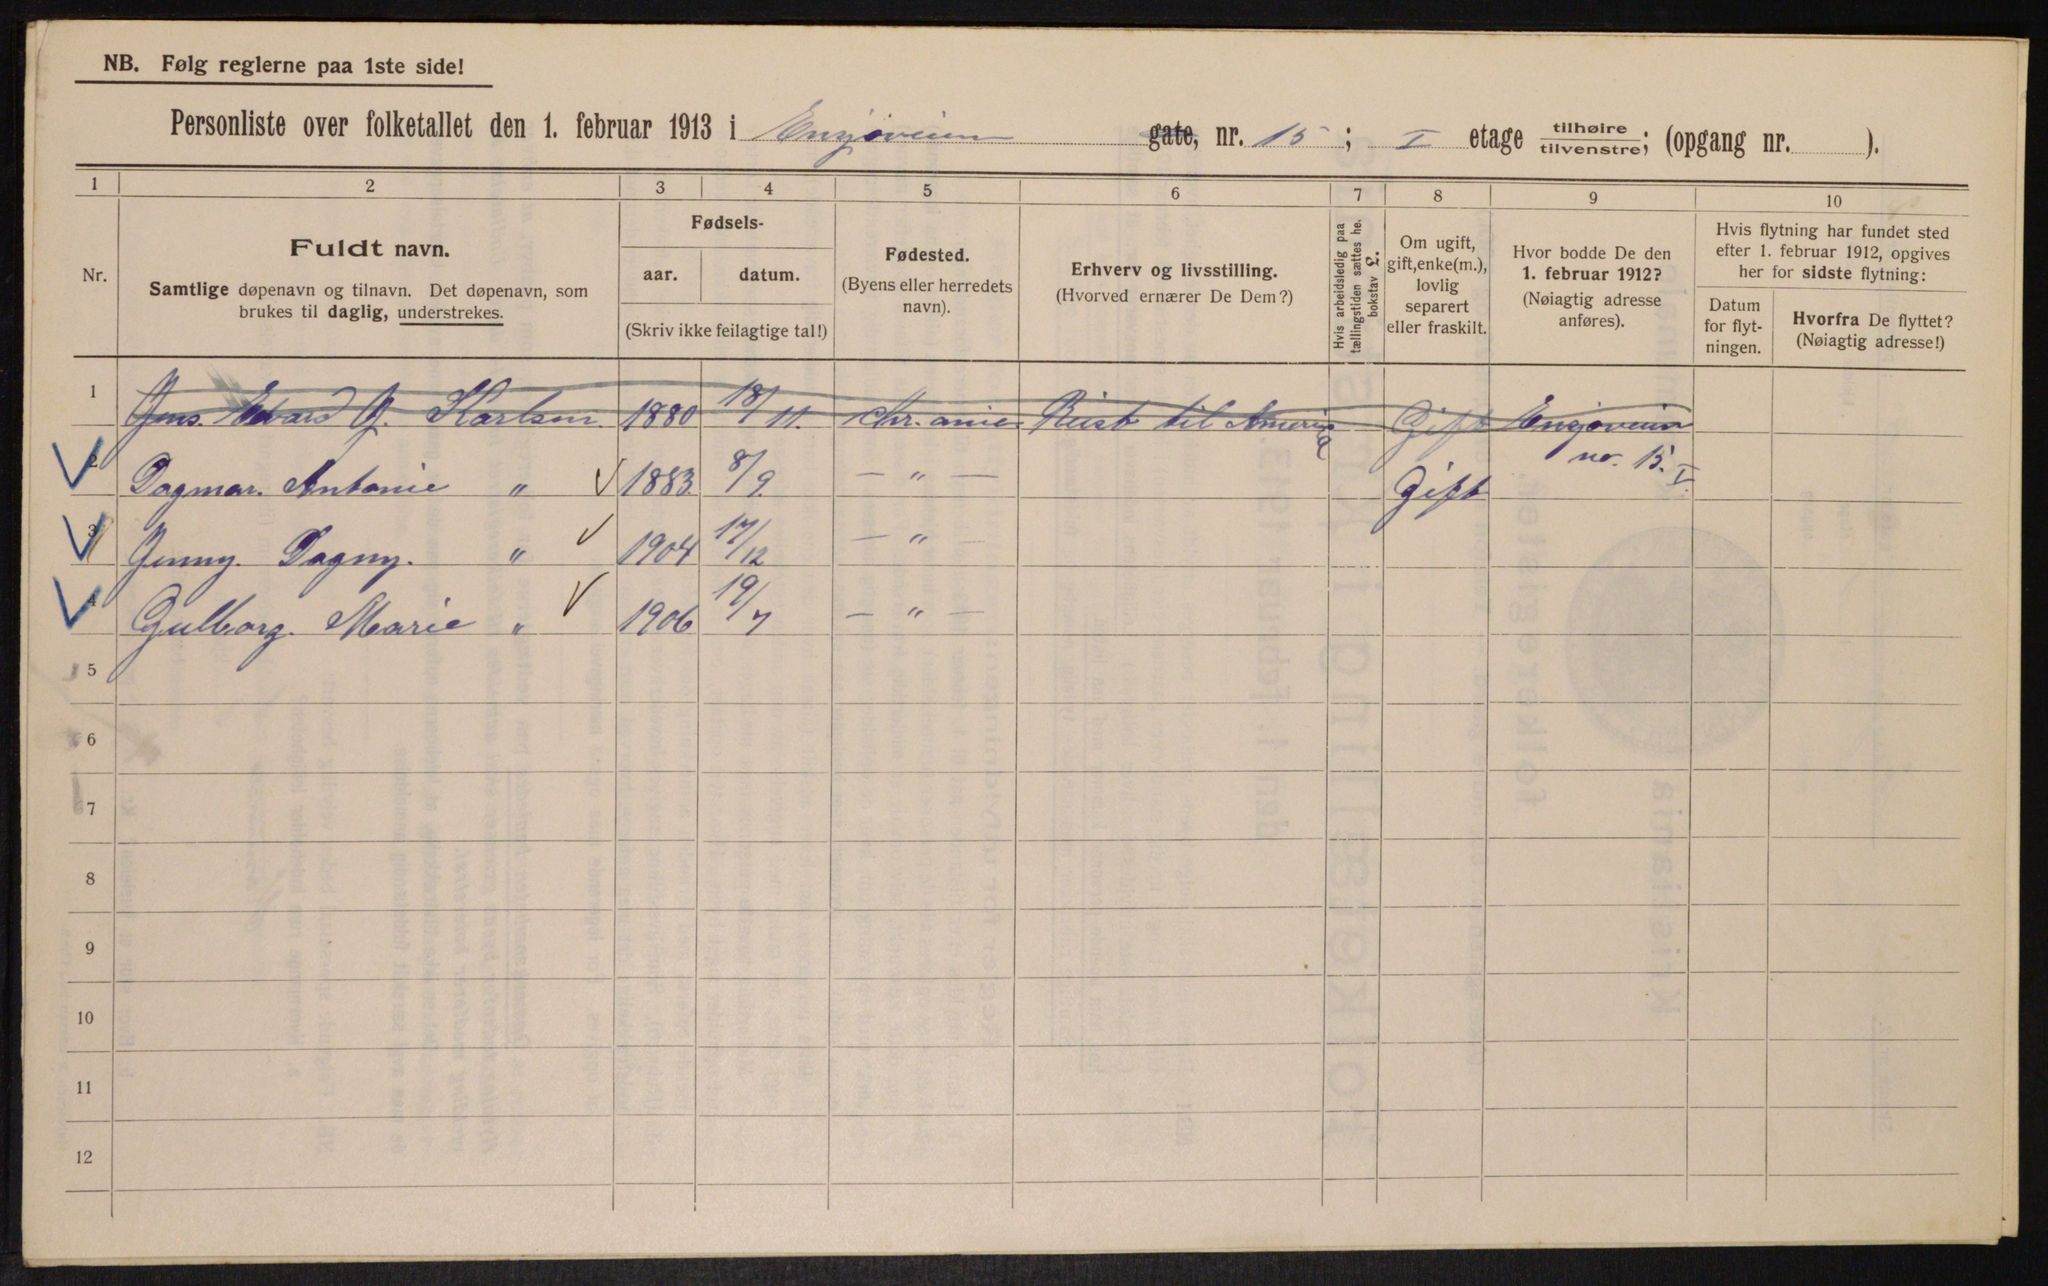 NB. Følg reglerne paa 1ste side!
Personliste over folketallet den 1. februar 1913 i Ensjøveien gate, nr. 15 ; I etage tilhøire tilvenstre; (opgang nr. ).
1 2 3 4 5 6 7 8 9 10
Nr.
Fuldt navn.
Samtlige døpenavn og tilnavn. Det døpenavn, som
brukes til daglig, understrekes.
Fødsels-
aar. datum.
(Skriv ikke feilagtige tal!)
Fødested.
(Byens eller herredets
navn).
Erhverv og livsstilling.
(Hvorved ernærer De Dem?)
Hvis arbeidsledig paa
tællingstiden sættes he.
bokstav L.
Om ugift,
gift, enke(m.),
lovlig
separert
eller fraskilt.
Hvor bodde De den
1. februar 1912?
(Nøiagtig adresse
anføres).
Hvis flytning har fundet sted
efter 1. februar 1912, opgives
her for sidste flytning:
Datum
for flyt-
ningen.
Hvorfra De flyttet?
(Nøiagtig adresse!)
1 Jens. Edvard J. Karlsen. 1880 18/11. Chr.ania Reist til Amerika Gift Ensjøveien
no. 15. I
2 Dagmar. Antonie " 1883 8/9. — " — Gift
3 Jenny. Dagny. " 1904 17/12 — " —
4 Gulborg. Marie " 1906 19/7 — " —
5
6
7
8
9
10
11
12